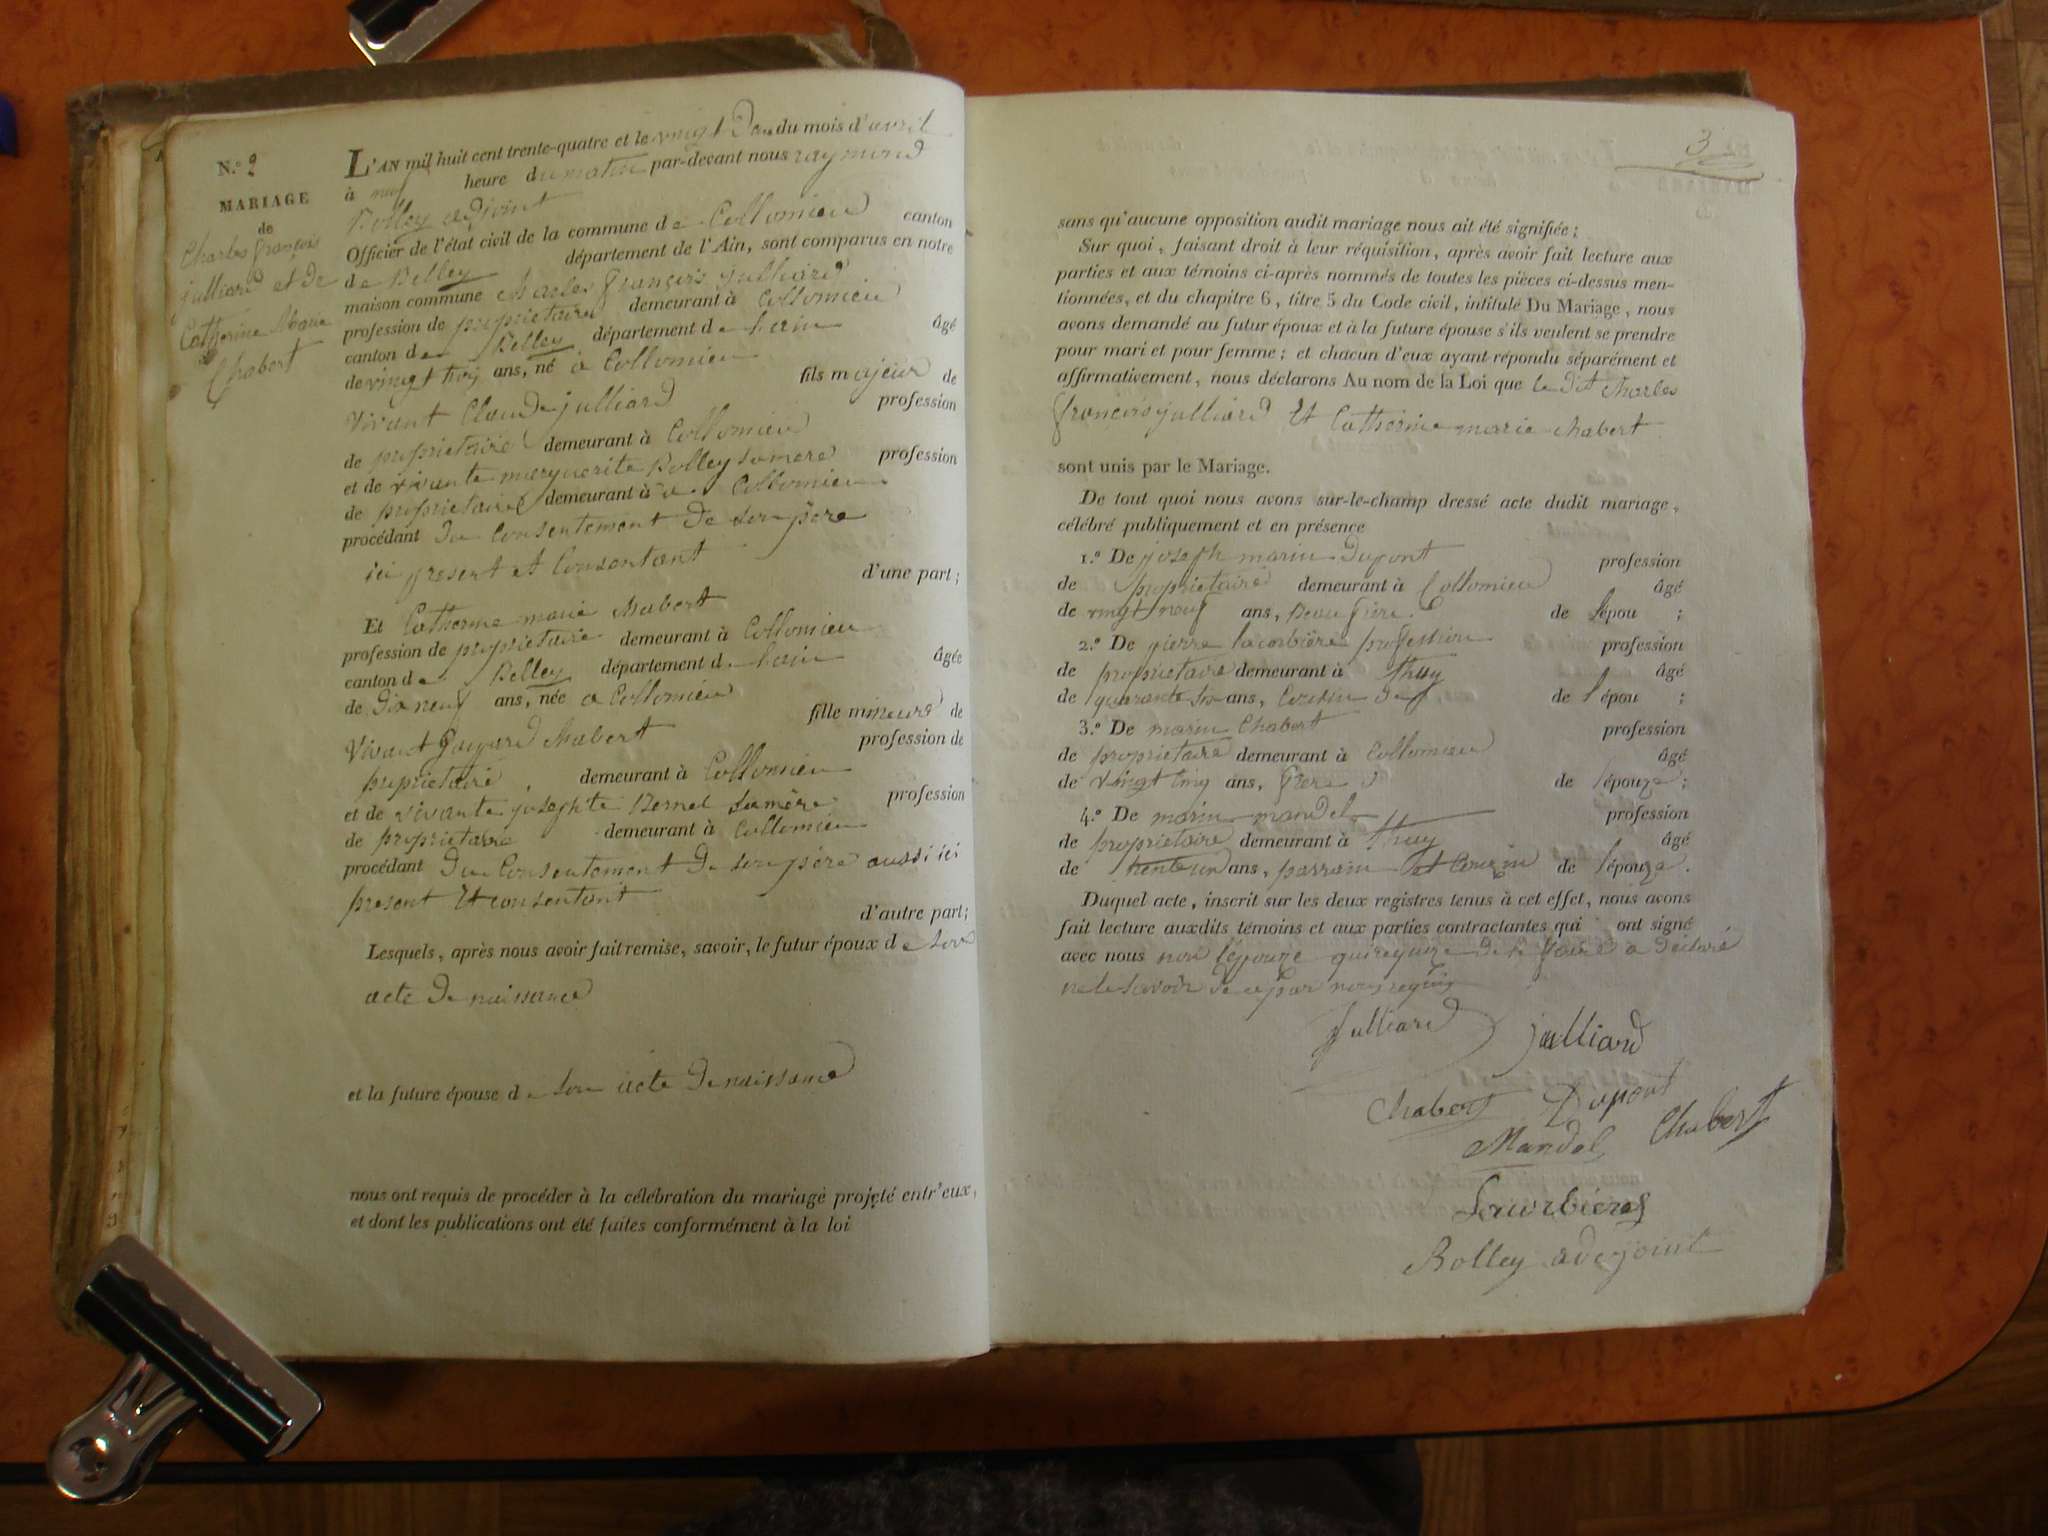 N.° 2
MARIAGE
de
Charles françois
julliard et de
Catherine Marie
Chabert
L'AN mil huit cent trente-quatre et le vingt du mois d'avril
à neuf heure du matin par-devant nous raymond
Bolley adjoint
Officier de l'état civil de la commune de Collomieu canton
de Belley département de l'Ain, sont comparus en notre
maison commune charles françois julliard
profession de propriétaire demeurant à Collomieu
canton de Belley département de lain âgé
de vingt trois ans, né à Collomieu
fils majeur de
vivant Claude julliard profession
de propriétaire demeurant à Collomieu
et de vivante marguerite Bolley sa mere profession
de propriétaire demeurant à Collomieu
procédant du Consentement de son père
ici present et Consentant d'une part;
Et Catherine marie Chabert
profession de propriétaire demeurant à Collomieu
canton de Belley département de lain âgée
de Dix neuf ans, née a Collomieu
fille mineure de
Vivant Gaspard Chabert profession de
propriétaire demeurant à Collomieu
et de vivante josephte Bernel sa mère profession
de propriétaire demeurant à Collomieu
procédant du Consentement de son père aussi ici
present Et consentant d'autre part;
Lesquels, après nous avoir fait remise, savoir, le futur époux de son
acte de naissance
et la future épouse de son acte De naissance
nous ont requis de procéder à la célébration du mariage projeté entr'eux,
et dont les publications ont été faites conformément à la loi
3
sans qu'aucune opposition audit mariage nous ait été signifiée;
Sur quoi, faisant droit à leur réquisition, après avoir fait lecture aux
parties et aux témoins ci-après nommés de toutes les pièces ci-dessus men-
tionnées, et du chapitre 6, titre 5 du Code civil, intitulé Du Mariage, nous
avons demandé au futur époux et à la future épouse s'ils veulent se prendre
pour mari et pour femme; et chacun d'eux ayant répondu séparément et
affirmativement, nous déclarons Au nom de la Loi que le dit Charles
françois julliard Et Catherine marie chabert
sont unis par le Mariage.
De tout quoi nous avons sur-le-champ dressé acte dudit mariage,
célébré publiquement et en présence
1.° De joseph marin Dupont profession
de propriétaire demeurant à Collomieu âgé
de vingt neuf ans, Beau frère de l'épou ;
2.° De pierre Lacorbière profession
de propriétaire demeurant à thuy âgé
de quarante ans, Cousin de l'épou ;
3.° De marin Chabert profession
de propriétaire demeurant à Collomieu âgé
de vingt cinq ans, frere de l'épouze;
4.° De marin mandel profession
de propriétaire demeurant à thuy âgé
de trente un ans, parrain et Cousin de l'épouze.
Duquel acte, inscrit sur les deux registres tenus à cet effet, nous avons
fait lecture auxdits témoins et aux parties contractantes qui ont signé
avec nous non l'épouze qui requize de le faire a déclaré
ne le savoir de ce par nous requis
Julliard julliard
Chabert Dupont
Mandel Chabert
Bolley adejoint